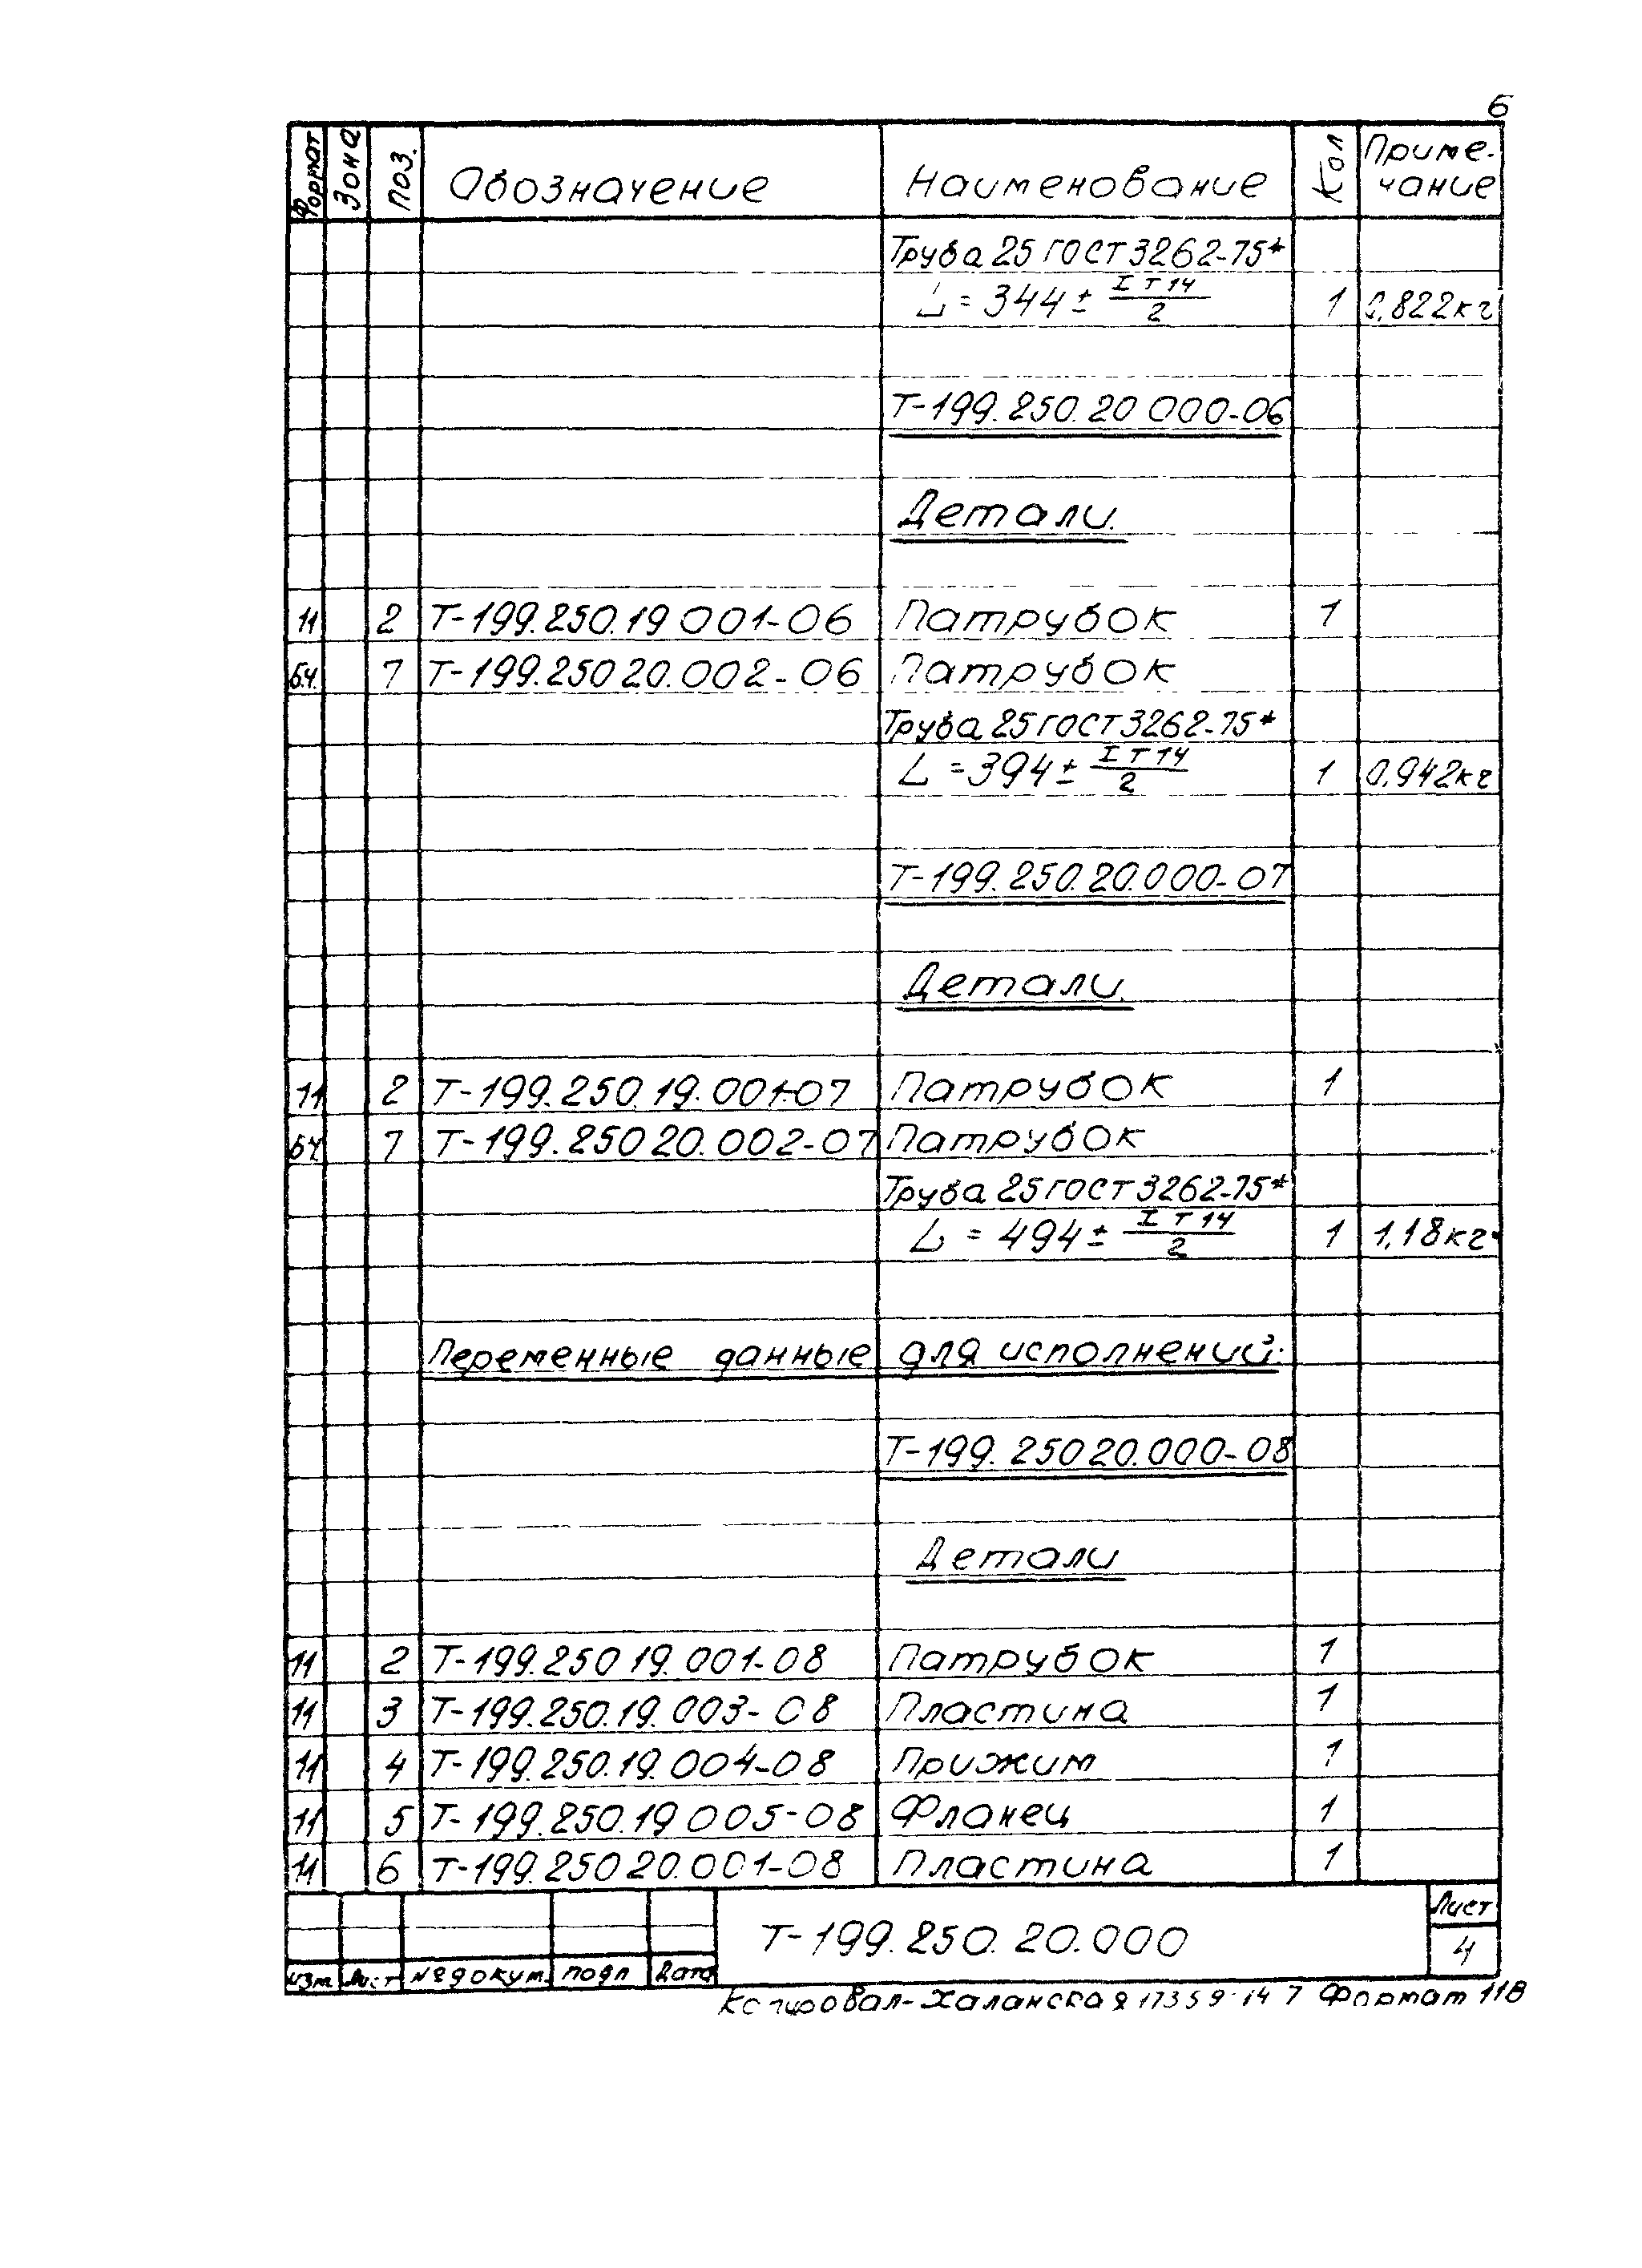 6
Формат Зона Поз. Обозначение Наименование Кол Приме-
чание
Труба 25 ГОСТ 3262-75*
L = 344 ± IT14/2 1 0,822кг
Т-199.250.20 000-06
Детали.
11 2 Т-199.250.19 001-06 Патрубок 1
б.ч. 7 Т-199.250 20.002-06 Патрубок
Труба 25 ГОСТ 3262-75*
L = 394 ± IT14/2 1 0,942кг
Т-199.250.20.000-07
Детали.
11 2 Т-199.250.19.001-07 Патрубок 1
бч. 7 Т-199.250 20.002-07 Патрубок
Труба 25 ГОСТ 3262-75*
L = 494 ± IT14/2 1 1,18кг
Переменные данные для исполнений:
Т-199.250 20.000-08
Детали
11 2 Т-199.250 19.001-08 Патрубок 1
11 3 Т-199.250.19.003-08 Пластина 1
11 4 Т-199.250.19.004-08 Прижим 1
11 5 Т-199.250.19 005-08 Фланец 1
11 6 Т-199.250 20.001-08 Пластина 1
Т-199.250.20.000 Лист
4
Изм. Лист №докум. подп Дата
Копировал-Халанская 17359-14 7 Формат 11В